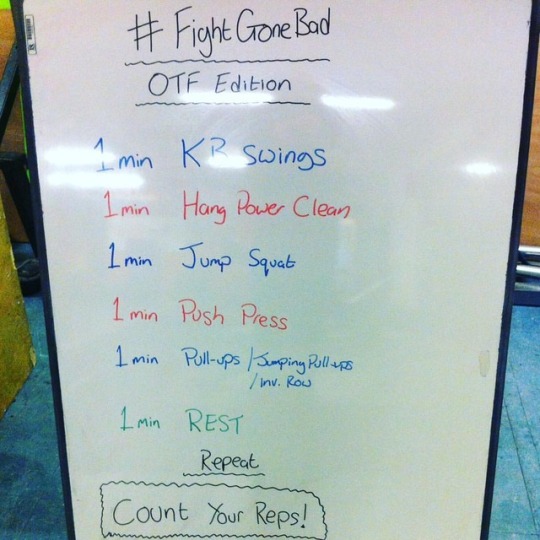 #FightGoneBad
OTF Edition
1 min KB Swings
1 min Hang Power Clean
1 min Jump Squat
1 min Push Press
1 min Pull-ups / Jumping Pull-ups
/ inv. Row
1 min REST
Repeat
Count Your Reps!